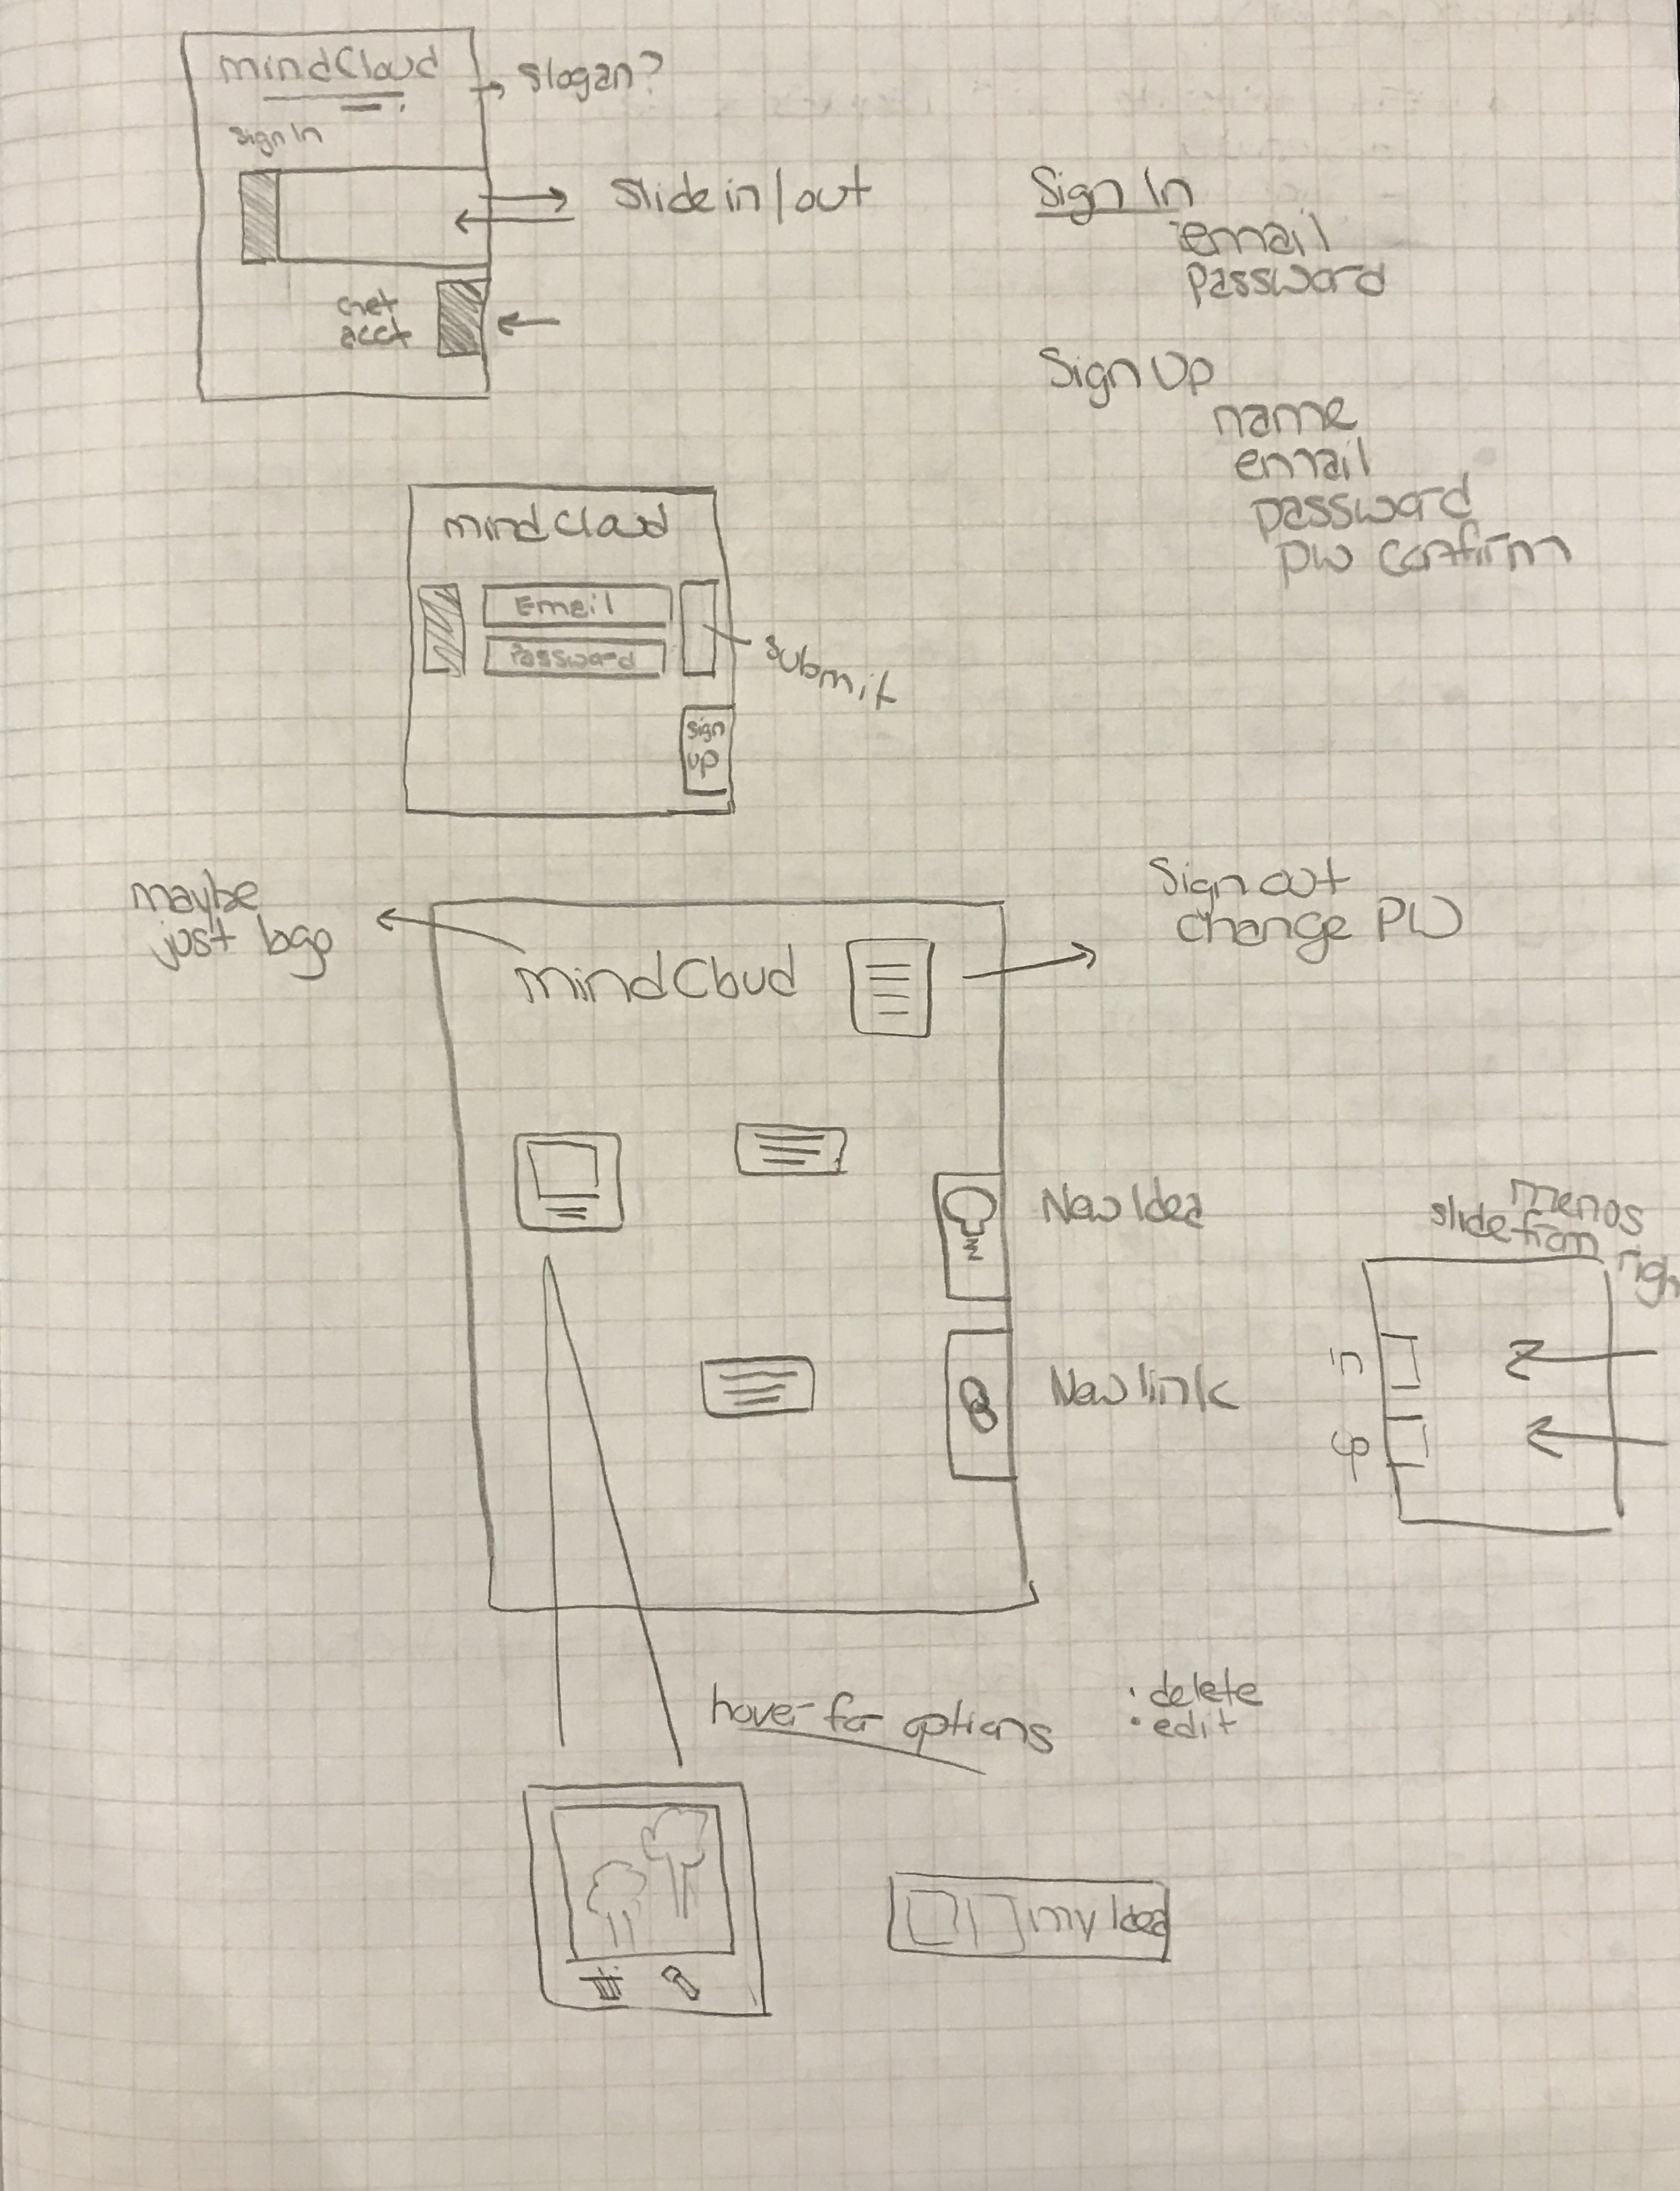 mindCloud
slogan?
sign In
slide in/out
get
acct
Sign In
email
password
Sign Up
name
email
password
pw confirm
mindCloud
Email
Password
submit
sign
up
maybe
just logo
mindCloud
Sign out
change PW
New Idea
New link
menus
slide from
righ
hover for options
• delete
• edit
my Idea